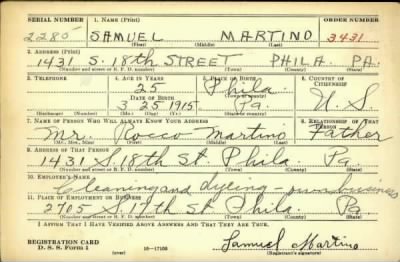 SERIAL NUMBER 1. NAME (Print) ORDER NUMBER
2285 SAMUEL MARTINO 3431
(First) (Middle) (Last)
2. ADDRESS (Print)
1431 S. 18th STREET PHILA. PA.
(Number and street or R. F. D. number) (Town) (County) (State)
3. TELEPHONE 4. AGE IN YEARS 5. PLACE OF BIRTH 6. COUNTRY OF CITIZENSHIP
25 Phila.
DATE OF BIRTH (Town or county)
3 25 1915 Pa. U. S.
(Exchange) (Number) (Mo.) (Day) (Yr.) (State or country)
7. NAME OF PERSON WHO WILL ALWAYS KNOW YOUR ADDRESS 8. RELATIONSHIP OF THAT PERSON
Mr. Rocco Martino Father
(Mr., Mrs., Miss) (First) (Middle) (Last)
9. ADDRESS OF THAT PERSON
1431 S. 18th St Phila. Pa.
(Number and street or R. F. D. number) (Town) (County) (State)
10. EMPLOYER'S NAME
Cleaning and dyeing - own business
11. PLACE OF EMPLOYMENT OR BUSINESS
2705 S. 17th St Phila. Pa
(Number and street or R. F. D. number) (Town) (County) (State)
I AFFIRM THAT I HAVE VERIFIED ABOVE ANSWERS AND THAT THEY ARE TRUE.
REGISTRATION CARD Samuel Martino
D. S. S. Form 1 (over) 16—17105 (Registrant's signature)